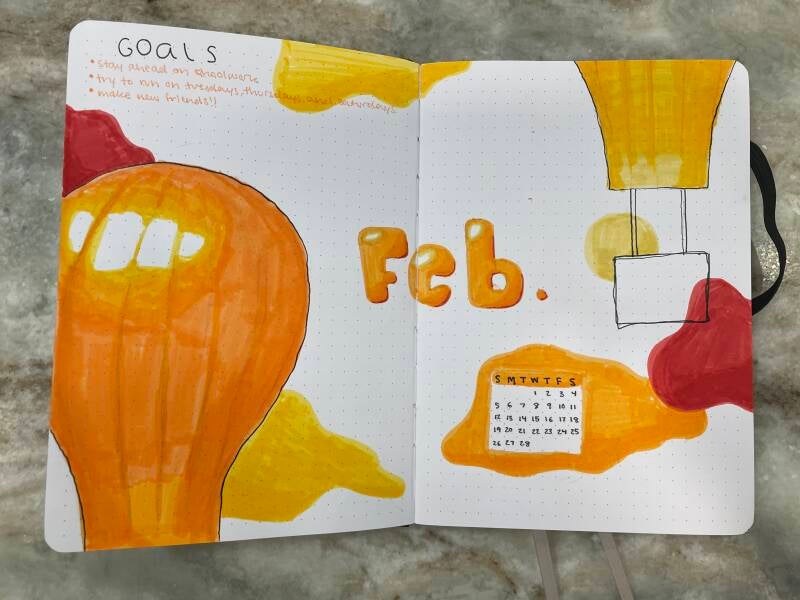 GOALS
• stay ahead on schoolwork
• try to run on tuesdays, thursdays, and saturdays
• make new friends!!
Feb.
S M T W T F S
1 2 3 4
5 6 7 8 9 10 11
12 13 14 15 16 17 18
19 20 21 22 23 24 25
26 27 28